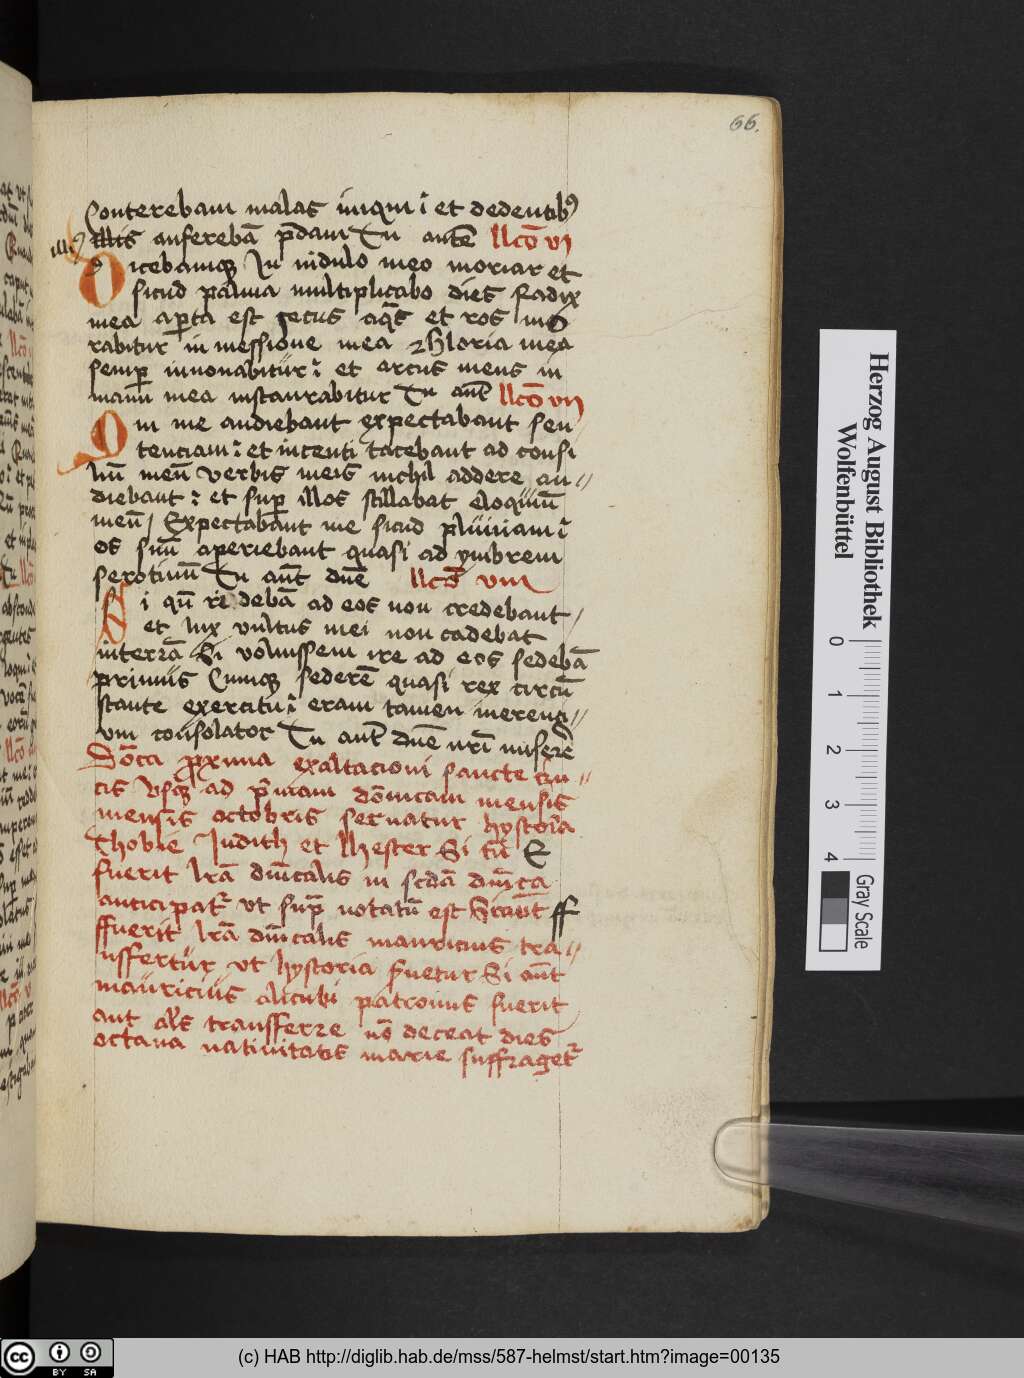 66.
Conterebam malas iniqui ⁊ et dedentibꝫ
illiꝰ illis auferebā p̄dam Tu autē llcō vi
Dicebamqꝫ In nidulo meo moriar et
sicud palma multiplicabo dies Radix
mea aꝑta est secus aq̄s et ros mo
rabitur in messione mea Gloria mea
semꝑ innouabitur ⁊ et arcus meus in
manu mea instaurabitur Tu aut̄ llcō vii
Qui me audiebant expectabant sen
tenciam ⁊ et intenti tacebant ad consi
liū meū verbis meis nichil addere au
diebant ⁊ et suꝑ illos stillabat eloquiū
meū Expectabant me sicud pluuiam ⁊
os suū aperiebant quasi ad ymbrem
serotinū Tu aut̄ dn̄e llcō viii
Si qn̄ ridebā ad eos non credebant
et lux vultus mei non cadebat
in terrā Si voluissem ire ad eos sedebā
primus Cumqꝫ sederē quasi rex circū
stante exercitu ⁊ eram tamen merenci
um consolator Tu aut̄ dn̄e nr̄i miserē
Dōca proxima exaltacioni sancte cru
cis vsqꝫ ad p̄mam dōnicam mensis
mensis octobris seruatur hystoria
Thobie Judith et Hester Si tn̄ E
fuerit lrā dn̄icalis in scdā dn̄ica
anticipatr̄ vt sup̄ notatū est Si aut̄ ff
ffuerit lrā dn̄icalis mauricius tra
nsfertur vt hystoria s̄uetur Si aut̄
mauricius alicubi patronus fuerit
aut als̄ transferre nō deceat dies
octaua natiuitatis marie suffragetr̄
Herzog August Bibliothek
Wolfenbüttel
0 1 2 3 4
Gray Scale
(c) HAB http://diglib.hab.de/mss/587-helmst/start.htm?image=00135
cc BY SA